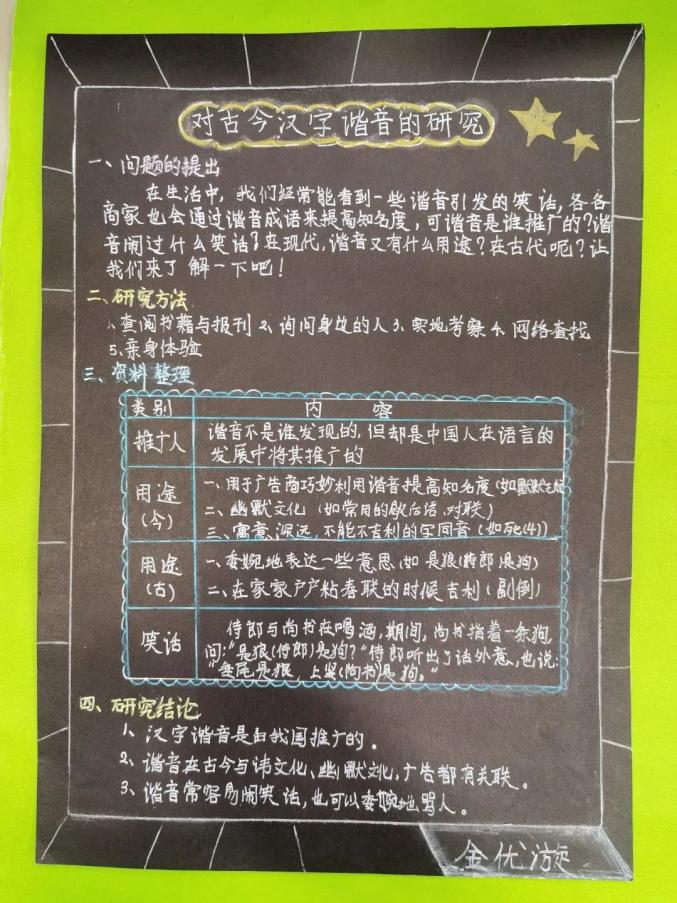 对古今汉字谐音的研究
一、问题的提出
在生活中，我们经常能看到一些谐音引发的笑话，各各
商家也会通过谐音成语来提高知名度，可谐音是谁推广的？谐
音闹过什么笑话？在现代，谐音又有什么用途？在古代呢？让
我们来了解一下吧！
二、研究方法
1、查阅书籍与报刊 2、询问身边的人 3、实地考察 4、网络查找
5、亲身体验
三、资料整理
类别 内容
推广人 谐音不是谁发现的，但却是中国人在语言的
发展中将其推广的
用途（今） 一、用于广告商巧妙利用谐音提高知名度（如默默无
二、幽默文化（如常用的歇后语、对联）
三、寓意深远，不能不吉利的字同音（如死(4)）
用途（古） 一、委婉地表达一些意思（如 是狼(侍郎)是狗）
二、在家家户户粘春联的时候吉利（副倒）
笑话 侍郎与尚书在喝酒，期间，尚书指着一条狗，
问：“是狼(侍郎)是狗？”侍郎听出了话外意，也说：
“垂尾是狼，上竖(尚书)是狗。”
四、研究结论
1、汉字谐音是由我国推广的。
2、谐音在古今与讳文化、幽默文化，广告都有关联。
3、谐音常容易闹笑话，也可以委婉地骂人。
金优游